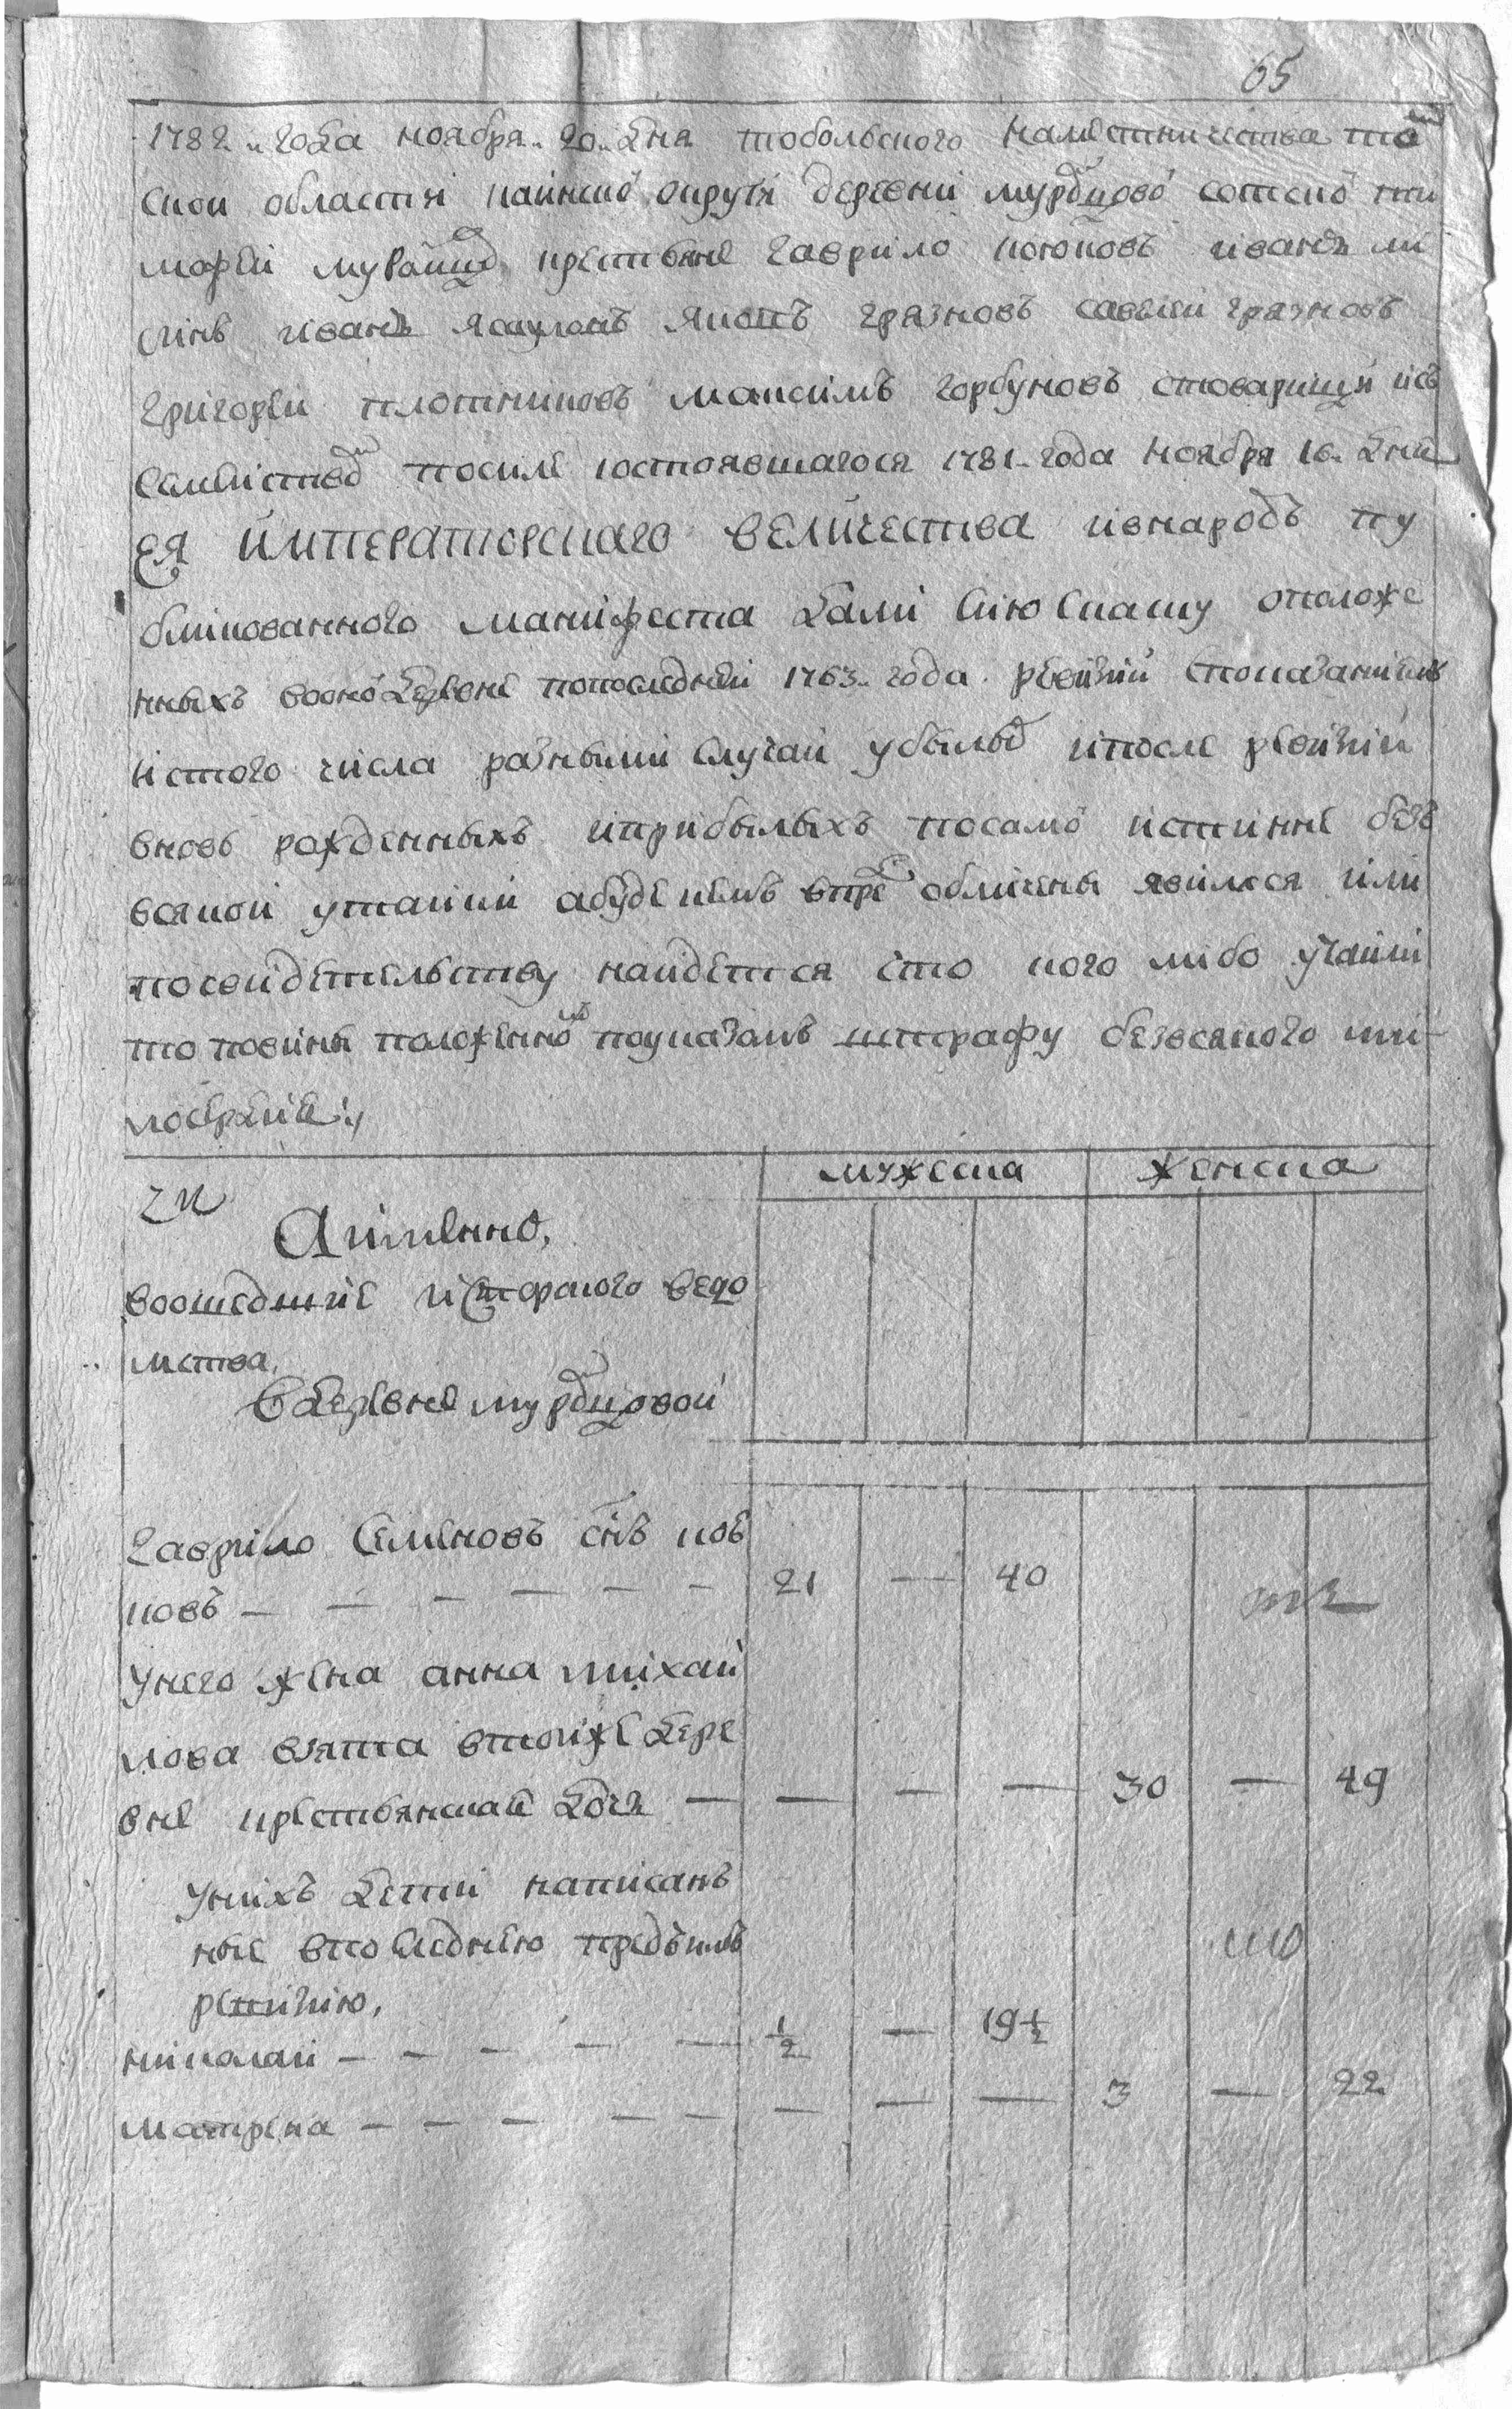 65
1782 „ года ноября „ 20 „ дня тобольского наместничества том
скои области каинской округи деревни мурашовой сотской ти
мофеи крестьяне гаврило иванъ ли
иванъ яковъ грязновъ савелеи грязновъ
григореи плотниковъ максимъ горбуновъ стоварищи исъ
посиле состоявшагося 1781 „ года ноября 16 „ дня
ея императорскаго величества ивнародъ пу
бликованного манифеста дали сию скаску оположе
нныхъ воной деревне попоследнеи 1763 „ года ревизии спонаказаниемъ
истого числа разными случаи убылыхъ ипосле ревизии
вновь рожденныхъ иприбылыхъ посамой истинне безъ
всякои утаики абуде кемъ впредь обличены явимся или
посвидетельству наидется что кого либо утаили
то повины положенному поуказамъ штрафу безвсякого ми
лосердия „
мужеска женска
Аимянно,
вошедшие ведо
мства,
вдеревне
гаврило семеновъ снъ
новъ — — — — — — 21 — 40
унего жена анна михаи
лова взята втоиже дере
вне крестьянская дочь — — — — 30 — 49
унихъ детеи написанъ
ные впоследнюю предъ симъ
ревизию,
николаи — — — — — ½ — 19½
матрена — — — — — — — — 3 — 22